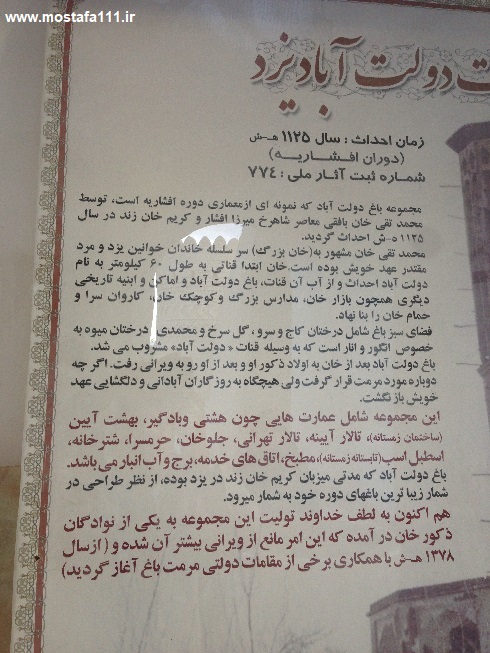 www.mostafa111.ir
ت دولت آباد یزد
زمان احداث : سال ۱۱۲۵ هـ-ش
(دوران افشاریه)
شماره ثبت آثار ملی : ۷۷۴
مجموعه باغ دولت آباد که نمونه ای ازمعماری دوره افشاریه است، توسط
محمد تقی خان بافقی معاصر شاهرخ میرزا افشار و کریم خان زند در سال
۱۱۲۵ ه-ش احداث گردید.
محمد تقی خان مشهور به(خان بزرگ) سر سلسله خاندان خوانین یزد و مرد
مقتدر عهد خویش بوده است.خان ابتدا قناتی به طول ۶۰ کیلومتر به نام
دولت آباد احداث و از آب آن قنات، باغ دولت آباد و اماکن و ابنیه تاریخی
دیگری همچون بازار خان، مدارس بزرگ وکوچک خان، کاروان سرا و
حمام خان را بنا نهاد.
فضای سبز باغ شامل درختان کاج و سرو ، گل سرخ و محمدی، درختان میوه به
خصوص انگور و انار است که به وسیله قنات « دولت آباد» مشروب می شد.
باغ دولت آباد بعد از خان به اولاد ذکور او و بعد از او رو به ویرانی رفت. اگر چه
دوباره مورد مرمت قرار گرفت ولی هیچگاه به روزگاران آبادانی و دلگشایی عهد
خویش باز نگشت.
این مجموعه شامل عمارت هایی چون هشتی وبادگیر، بهشت آیین
(ساختمان زمستانه)، تالار آیینه، تالار تهرانی، جلوخان، حرمسرا، شترخانه،
اسطبل اسب(تابستانه زمستانه)، مطبخ، اتاق های خدمه، برج و آب انبار می باشد.
باغ دولت آباد که مدتی میزبان کریم خان زند در یزد بوده، از نظر طراحی در
شمار زیبا ترین باغهای دوره خود به شمار میرود.
هم اکنون به لطف خداوند تولیت این مجموعه به یکی از نوادگان
ذکور خان در آمده که این امر مانع از ویرانی بیشتر آن شده و ( ازسال
۱۳۷۸ هـ-ش با همکاری برخی از مقامات دولتی مرمت باغ آغاز گردید)